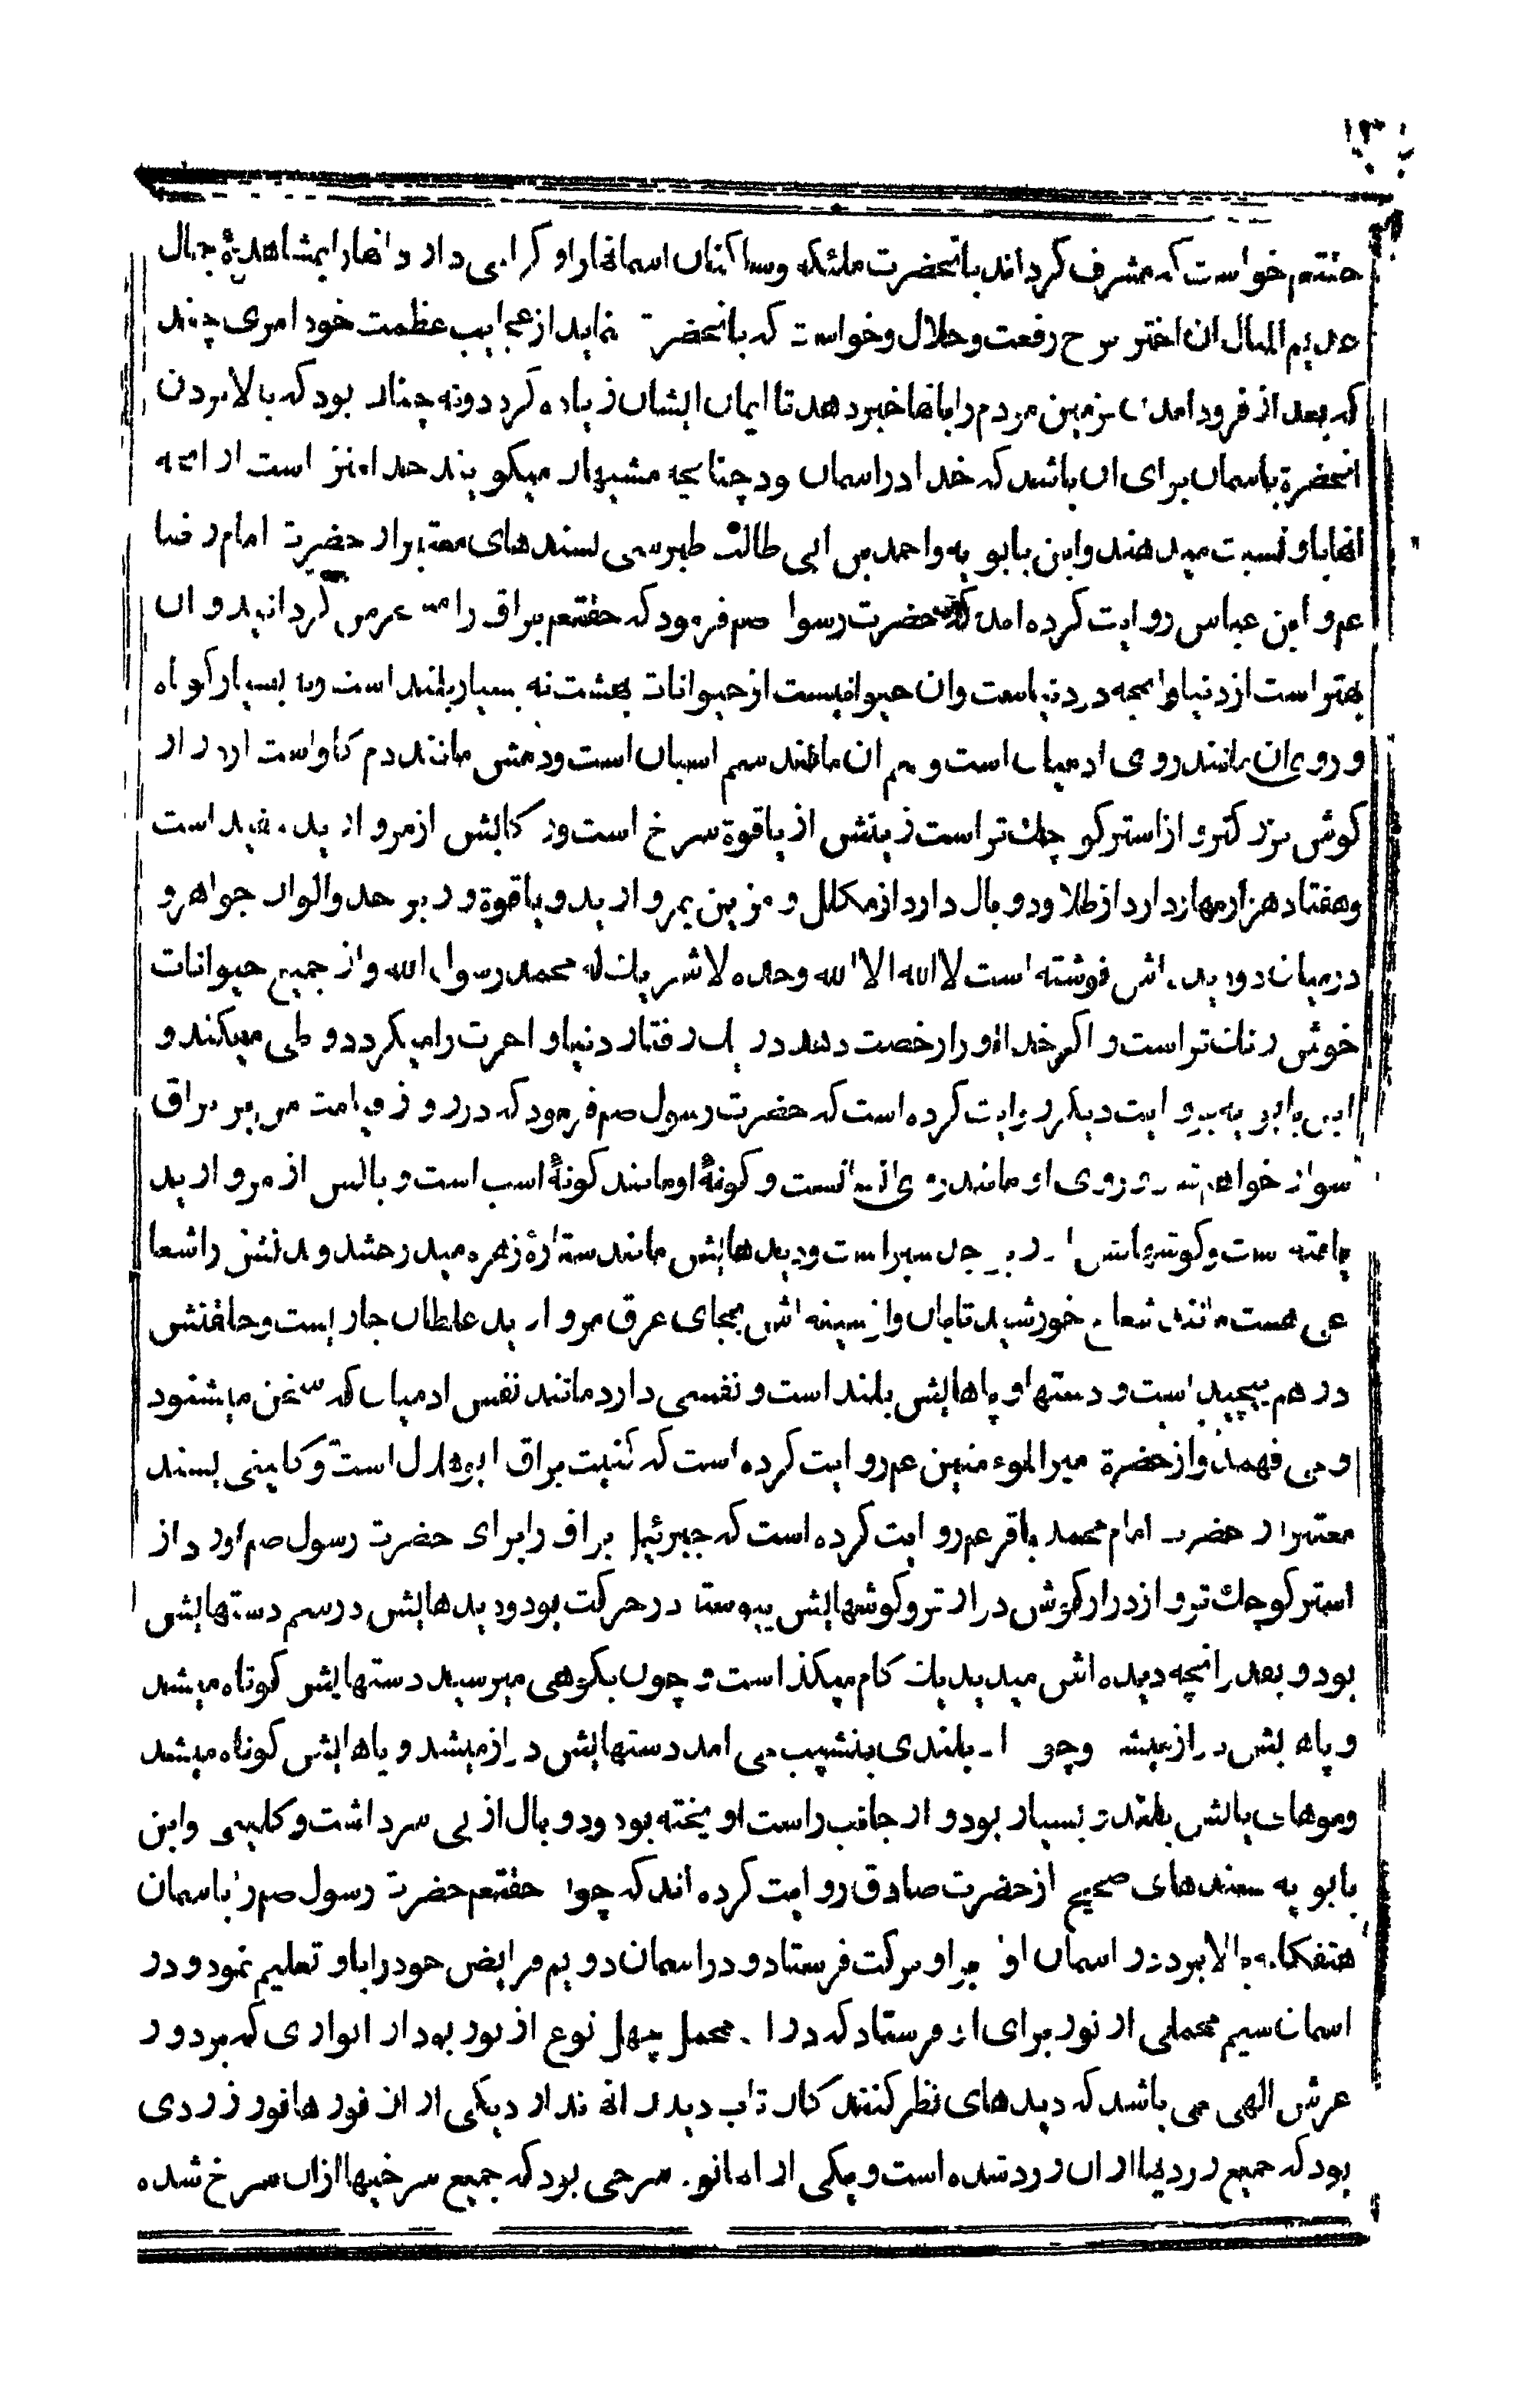 حقتعم خواست که مشرف گرداند بانحضرت ملئکه وساکنان اسمانهارا و گرامی دارد انهارا بمشاهدهٔ جمال
عدیم المثال ان اختر برج رفعت وجلال وخواست که بانحضرت نماید از عجایب عظمت خود امری چند
که بعد از فرود امدن بزمین مردم را بانها خبر دهد تا ایمان ایشان زیاده گردد ونه چنان بود که بالا بردن
انحضرة باسمان برای ان باشد که خدا در اسمان بود چنانچه مشبهان میگویند خدا منزه است از انچه
انها باو نسبت میدهند وابن بابویه واحمد بن ابی طالب طبرسی بسندهای معتبر از حضرت امام رضا
عم و ابن عباس روایت کرده اند که حضرت رسول صم فرمود که حقتعم براق را من گردانید و ان
بهتر است از دنیا وانچه در دنیاست وان حیوانیست از حیوانات بهشت نه بسیار بلند است ونه بسیار کوتاه
و روی ان مانند روی ادمیان است و سم ان مانند سم اسبان است ودمش مانند دم گاو است از دراز
گوش بزرگتر و از استر کوچک تر است زینش از یاقوة سرخ است ورکابش از مروارید سفید است
وهفتاد هزار مهار دارد از طلا ودو بال دارد از مکلل و مزین بمروارید و یاقوة و زبرجد والوان جواهر و
درمیان دو دیده اش نوشته است لا اله الا الله وحده لا شریک له محمد رسول الله واز جمیع حیوانات
خوش رنک تر است و اگر خدا او را رخصت دهد در یک رفتار دنیا و اخرت را میگردد و طی میکند و
ابن بابویه بروایت دیگر روایت کرده است که حضرت رسول صم فرمود که در روز قیامت من بر براق
سوار خواهم شد و روی او مانند روی انسانست و گونهٔ او مانند گونهٔ اسب است و یالش از مروارید
بافته است وگوشهایش از زبرجد سبز است ودیدهایش مانند ستارهٔ زهره میدرخشد و بدنش را شعا
عی هست مانند شعاع خورشید تابان واز سینه اش بجای عرق مروارید غلطان جاریست وخلقتش
در هم پیچیده است و دستها و پاهایش بلند است و نفسی دارد مانند نفس ادمیان که سخن میشنود
و می فهمد واز حضرة امیر الموءمنین عم روایت کرده است که کنیت براق ابو هلال است و کلینی بسند
معتبر از حضرت امام محمد باقر عم روایت کرده است که جبرئیل براق را برای حضرت رسول صم اورد از
استر کوچک تر و از درازگوش دراز تر و گوشهایش پیوسته در حرکت بود ودیدهایش در سم دستهایش
بود و بقدر انچه دیده اش میدید یک کام میگذاشت و چون بکوهی میرسید دستهایش کوتاه میشد
و پاهایش دراز میشد وچون از بلندی بنشیب می امد دستهایش دراز میشد و پاهایش کوتاه میشد
وموهای یالش بلند و بسیار بود و از جانب راست اویخته بود ودو بال از پی سر داشت و کلینی وابن
بابویه بسندهای صحیح از حضرت صادق روایت کرده اند که چون حقتعم حضرت رسول صم را باسمان
هفتگانه بالا برد در اسمان اول بر او برکت فرستاد و در اسمان دویم فرایض خود را باو تعلیم نمود و در
اسمان سیم محملی از نور برای او فرستاد که در ان محمل چهل نوع از نور بود از انواری که بر دور
عرش الهی می باشد که دیدهای نظر کنندگان تاب دیدن انها ندارد یکی از ان نورها نور زردی
بود که جمیع زردیها از ان زرد شده است و یکی از ان نور سرخی بود که جمیع سرخیها ازان سرخ شده